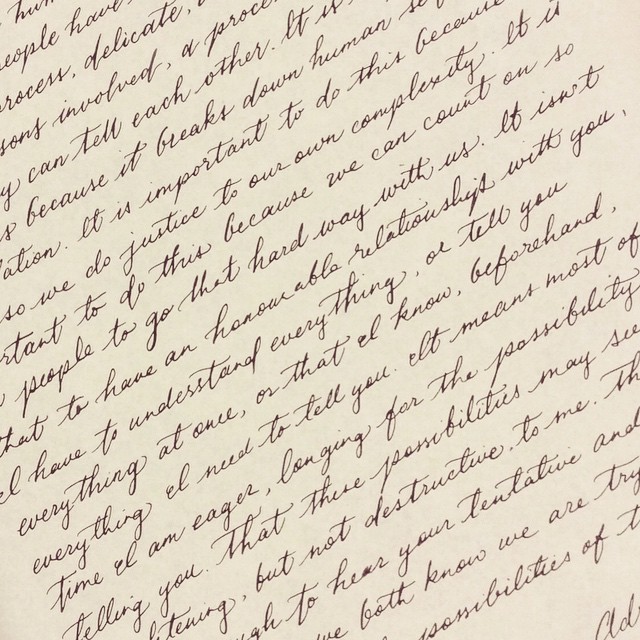 hum
people have
process, delicate,
sons involved, a proce
y can tell each other. It is
s because it breaks down human se
ation. It is important to do this because
so we do justice to our own complexity. It is
rtant to do this because we can count on so
people to go that hard way with us. It isn't
that to have an honourable relationships with you,
I have to understand everything, or tell you
everything at once, or that I know, beforehand,
everything I need to tell you. It means most of
time I am eager, longing for the possibility
telling you. That these possibilities may se
tening, but not destructive, to me. Th
gh to hear your tentative and
we both know we are try
possibilities of t
Ad